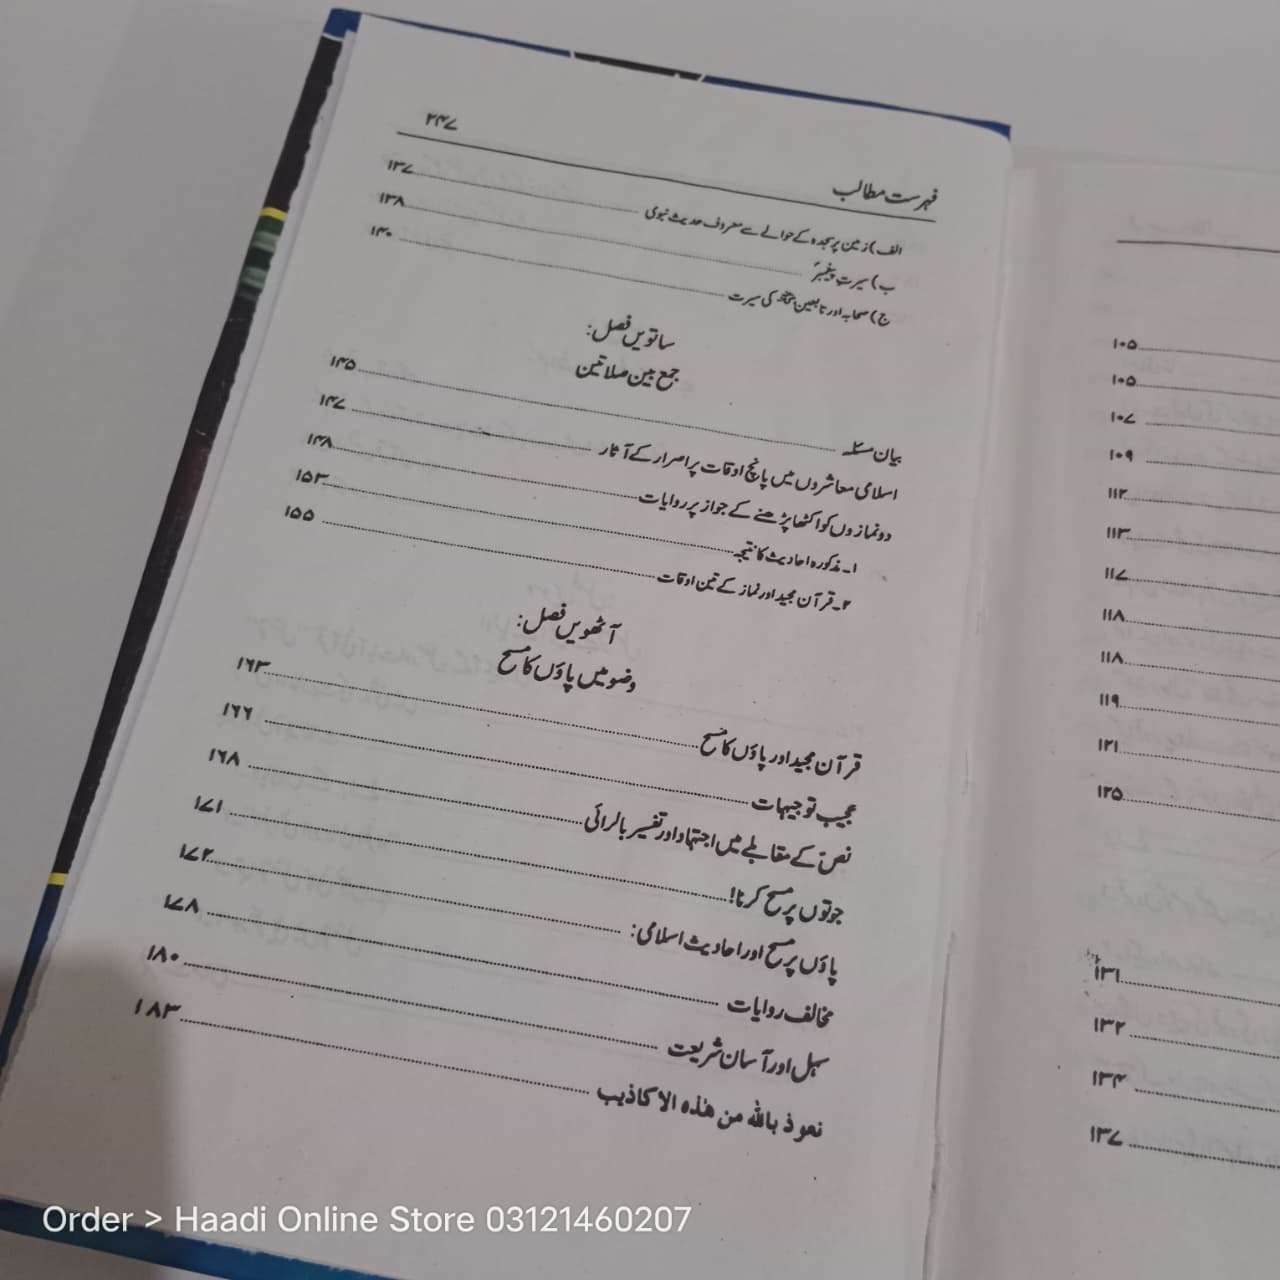 ۲۴۷
فہرست مطالب
الف) زمین پر سجدہ کے حوالے سے معروف حدیث نبوی ........ ۱۳۷
ب) سیرت پیغمبرؐ ........ ۱۳۸
ج) صحابہ اور تابعین کی سیرت ........ ۱۴۰
ساتویں فصل:
جمع بین صلاتین
بیان مسئلہ ........ ۱۴۵
اسلامی معاشروں میں پانچ اوقات پر اصرار کے آثار ........ ۱۴۷
دو نمازوں کو اکٹھا پڑھنے کے جواز پر روایات ........ ۱۴۸
۱۔ مذکورہ احادیث کا نتیجہ ........ ۱۵۳
۲۔ قرآن مجید اور نماز کے تین اوقات ........ ۱۵۵
آٹھویں فصل:
وضو میں پاؤں کا مسح
قرآن مجید اور پاؤں کا مسح ........ ۱۶۳
عجیب توجیہات ........ ۱۶۶
نص کے مقابلے میں اجتہاد اور تفسیر بالرائی ........ ۱۶۸
جوتوں پر مسح کرنا! ........ ۱۷۱
پاؤں پر مسح اور احادیث اسلامی: ........ ۱۷۲
مخالف روایات ........ ۱۷۸
سہل اور آسان شریعت ........ ۱۸۰
نعوذ باللہ من ھٰذہ الاکاذیب ........ ۱۸۳
۱۰۵
۱۰۵
۱۰۷
۱۰۹
۱۱۲
۱۱۳
۱۱۷
۱۱۸
۱۱۸
۱۱۹
۱۲۱
۱۲۵
۱۳۱
۱۳۲
۱۳۴
۱۳۷
Order > Haadi Online Store 03121460207